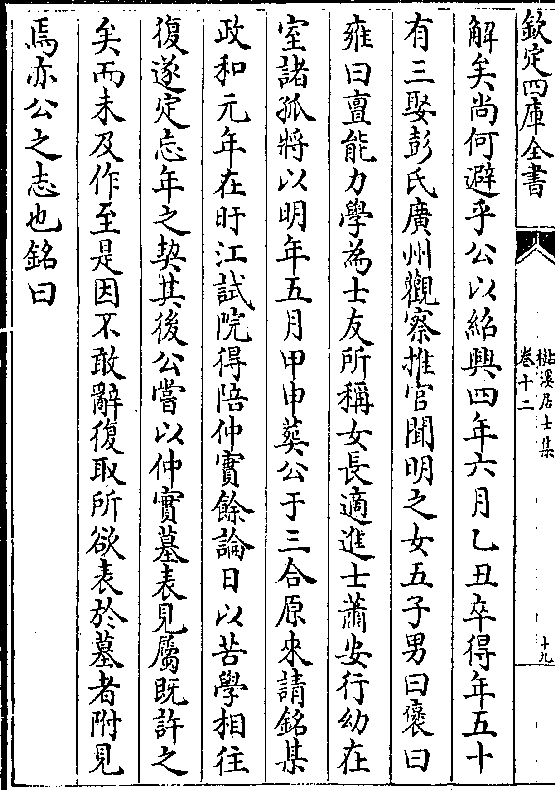 欽定四庫全書
檆溪居士集
卷十二
十九
解矣尚何避乎公以紹興四年六月乙丑卒得年五十
有三娶彭氏廣州觀察推官聞明之女五子男曰褒曰
雍曰亶能力學為士友所稱女長適進士蕭安行幼在
室諸孤將以明年五月甲申葬公于三合原來請銘某
政和元年在旴江試院得陪仲實餘論日以苦學相往
復遂定忘年之契其後公嘗以仲實墓表見屬既許之
矣而未及作至是因不敢辭復取所欲表於墓者附見
焉亦公之志也銘曰